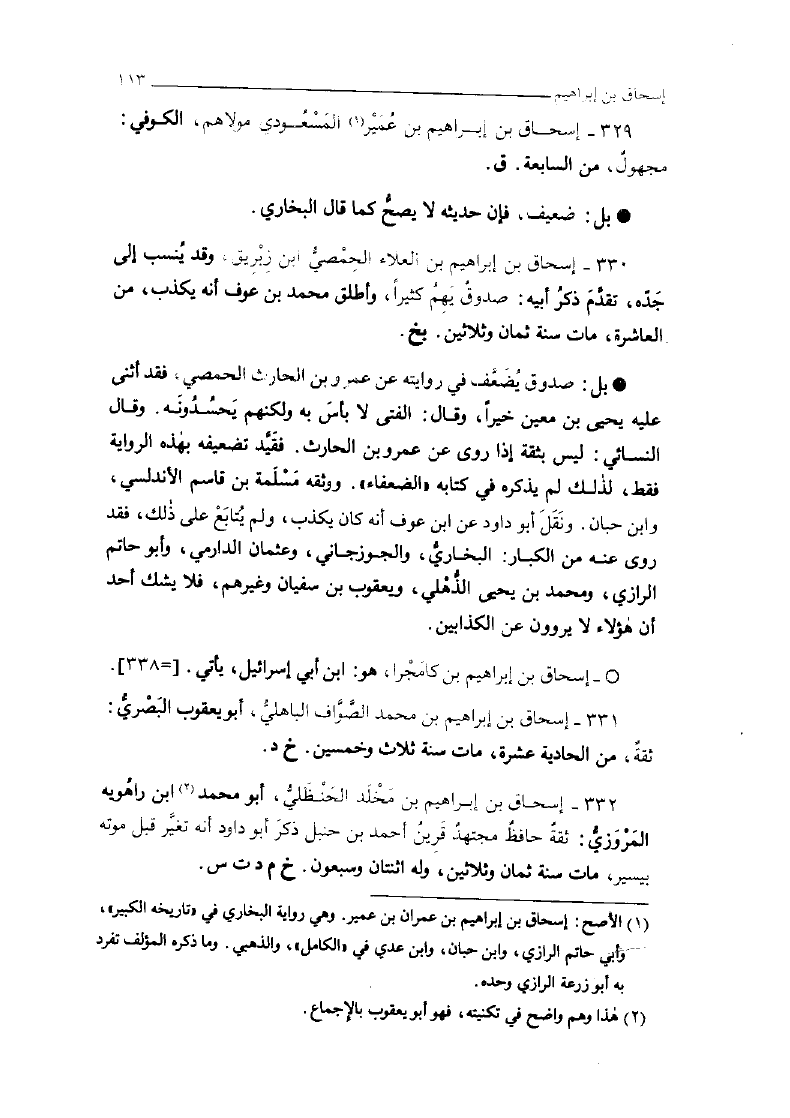 إسحاق بن إبراهيم ١١٣
٣٢٩ - إسحـاق بن إبـراهيم بن عُمَيْر(١) المَسْعُـودي مولاهم، الكوفي:
مجهولٌ، من السابعة. ق.
● بل: ضعيف، فإن حديثه لا يصحُّ كما قال البخاري.
٣٣٠ - إسحاق بن إبراهيم بن العلاء الحِمْصيُّ ابن زِبْريق، وقد يُنسب إلى
جَدّه، تقدَّمَ ذكرُ أبيه: صدوقٌ يَهِمُ كثيراً، وأطلق محمد بن عوف أنه يكذب، من
العاشرة، مات سنة ثمان وثلاثين. بخ.
● بل: صدوق يُضَعَّف في روايته عن عمرو بن الحارث الحمصي، فقد أثنى
عليه يحيى بن معين خيراً، وقال: الفتى لا بأسَ به ولكنهم يَحسُدُونَـه. وقال
النسـائي: ليس بثقة إذا روى عن عمرو بن الحارث. فقيَّد تضعيفه بهذه الرواية
فقط، لذٰلـك لم يذكره في كتابه «الضعفاء». ووثقه مَسْلَمة بن قاسم الأندلسي،
وابن حبان. ونَقَلَ أبو داود عن ابن عوف أنه كان يكذب، ولم يُتابَعْ على ذٰلك، فقد
روى عنـه من الكبار: البخـاريُّ، والجـوزجـاني، وعثمان الدارمي، وأبو حاتم
الرازي، ومحمد بن يحيى الذُّهْلي، ويعقوب بن سفيان وغيرهم، فلا يشك أحد
أن هٰؤلاء لا يروون عن الكذابين.
○ - إسحاق بن إبراهيم بن كامَجْرا، هو: ابن أبي إسرائيل، يأتي. [=٣٣٨].
٣٣١ - إسحاق بن إبراهيم بن محمد الصَّوَّاف الباهليُّ، أبو يعقوب البَصْريُّ:
ثقةٌ، من الحادية عشرة، مات سنة ثلاث وخمسين. خ د.
٣٣٢ - إسحـاق بن إبـراهيم بن مَخْلَد الحَنْـظَليُّ، أبو محمد(٢) ابن راهُويه
المَرْوَزيُّ: ثقةٌ حافظٌ مجتهدٌ قَرينُ أحمد بن حنبل ذكرَ أبو داود أنه تغيَّر قبل موته
بيسير، مات سنة ثمان وثلاثين، وله اثنتان وسبعون. خ م د ت س.
(١) الأصح: إسحاق بن إبراهيم بن عمران بن عمير. وهي رواية البخاري في «تاريخه الكبير»،
وأبي حاتم الرازي، وابن حبان، وابن عدي في «الكامل»، والذهبي. وما ذكره المؤلف تفرد
به أبو زرعة الرازي وحده.
(٢) هٰذا وهم واضح في تكنيته، فهو أبو يعقوب بالإجماع.